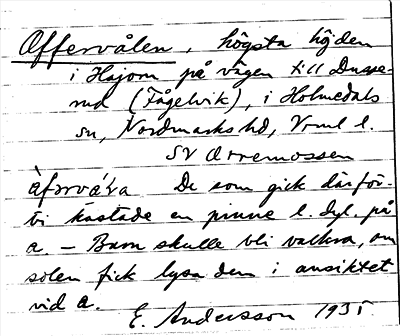 Offervålen, högsta höjden
i Hajom på vägen till Dusse-
rud (Fågelvik), i Holmedals
sn, Nordmarks hd, Vrml l.
SV Orremossen
àfərvá'ra De som gick därför-
bi kastade en pinne l. dyl. på
a. – Barn skulle bli vackra, om
solen fick lysa dem i ansiktet
vid a.
E. Andersson 1935